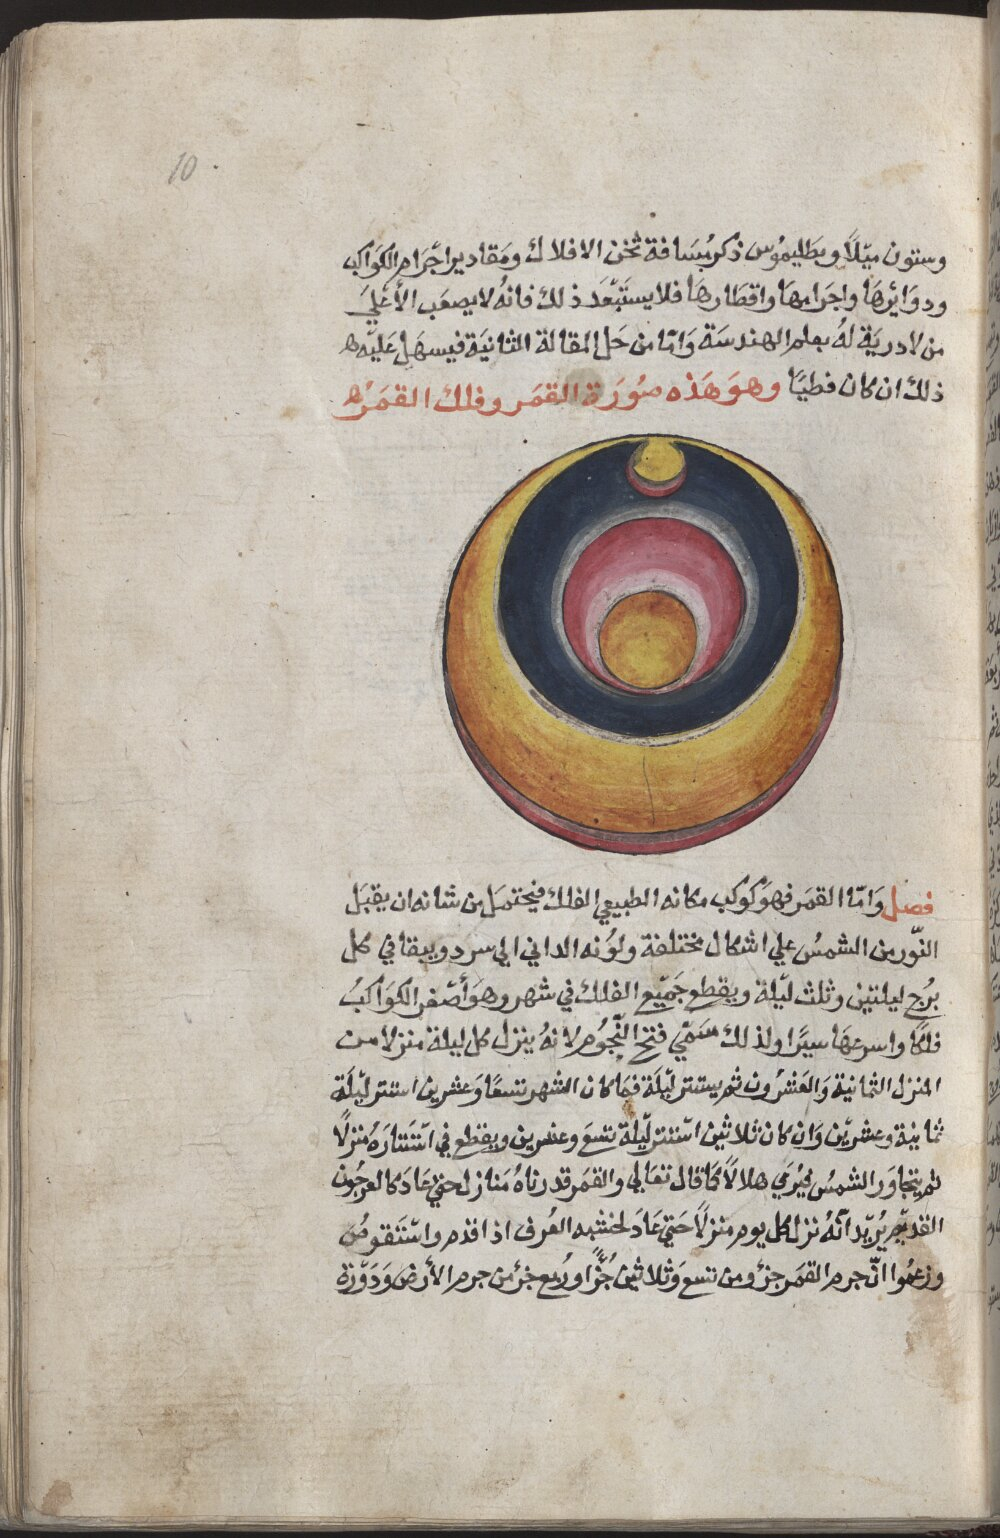 10
وستون ميلًا وبطليموس ذكر مسافة ثخن الافلاك ومقادير اجرام الكواكب
ودوايرها واجرامها واقطارها فلا يستبعد ذلك فانه لا يصعب الا علي
من لا درية له بعلم الهندسة واما من حل المقالة الثانية فيسهل عليه
ذلك ان كان فطيًا وهو هذه صورة القمر وفلك القمر
فصل واما القمر فهو كوكب مكانه الطبيعي الفلك فيحتمل من شانه ان يقبل
النور من الشمس علي اشكال مختلفة ولونه الداني الي سرد ويبقا في كل
برج ليلتين وثلث ليلة ويقطع جميع الفلك في شهر وهو أصغر الكواكب
فلكًا واسرعها سيرًا ولذلك سمي فتح النجوم لانه ينزل كل ليلة منزلا من
المنزل الثمانية والعشرون ثم يستتر ليلة فما كان الشهر تسعًا وعشرين استتر ليلة
ثمانية وعشرين وان كان ثلاثين استتر ليلة تسع وعشرين ويقطع في استتاره منزلًا
ثم يتجاور الشمس فيرمي هلالًا كما قال تعالي والقمر قدرناه منازل حتي عاد كالعرجون
القديم يريد انه نزل كل يوم منزلًا حتي عاد لخشبه العرف اذا قدم واستقوص
وزعموا انّ جرم القمر جزؤ من تسع وثلاثين جزًا وربع جزؤ من جرم الأرض ودورة